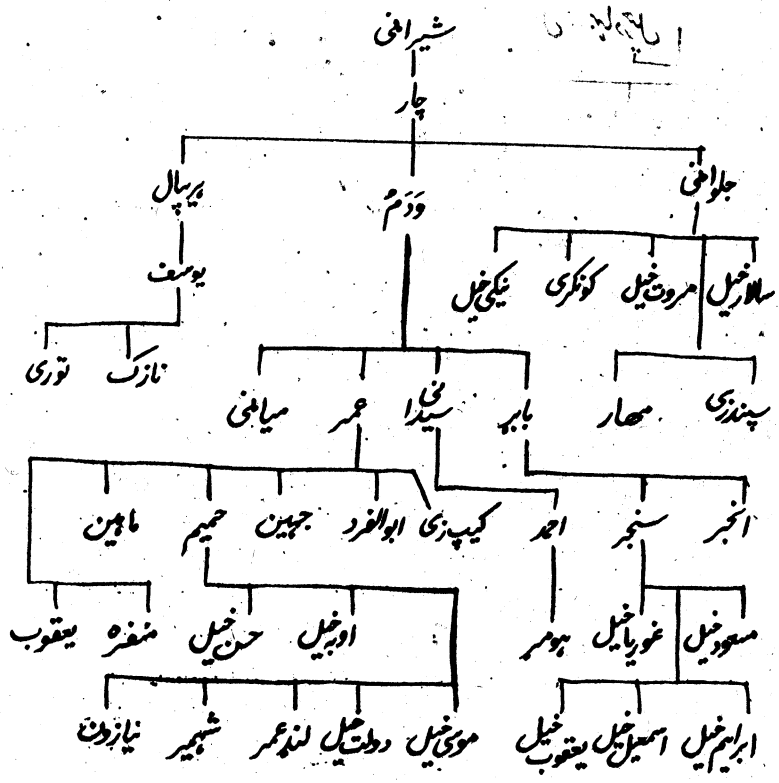 شیرانی
چار
جلوانی
وَدَمُ
ہریپال
یوسف
سالارخیل
مروت خیل
کونکری
نیکی خیل
نازک
توری
سپندزی
مہار
بابر
سیدانی
عمر
میانی
انجر
سنجر
احمد
کیپ زی
ابوالفرد
جہین
حمیم
ماہین
مسعودخیل
غوریاخیل
ہومر
اوبہ خیل
حسن خیل
منفرہ
یعقوب
ابراہیم خیل
اسمعیل خیل
یعقوب خیل
موسی خیل
دولت خیل
لنڈعمر
شہمیر
نیازون